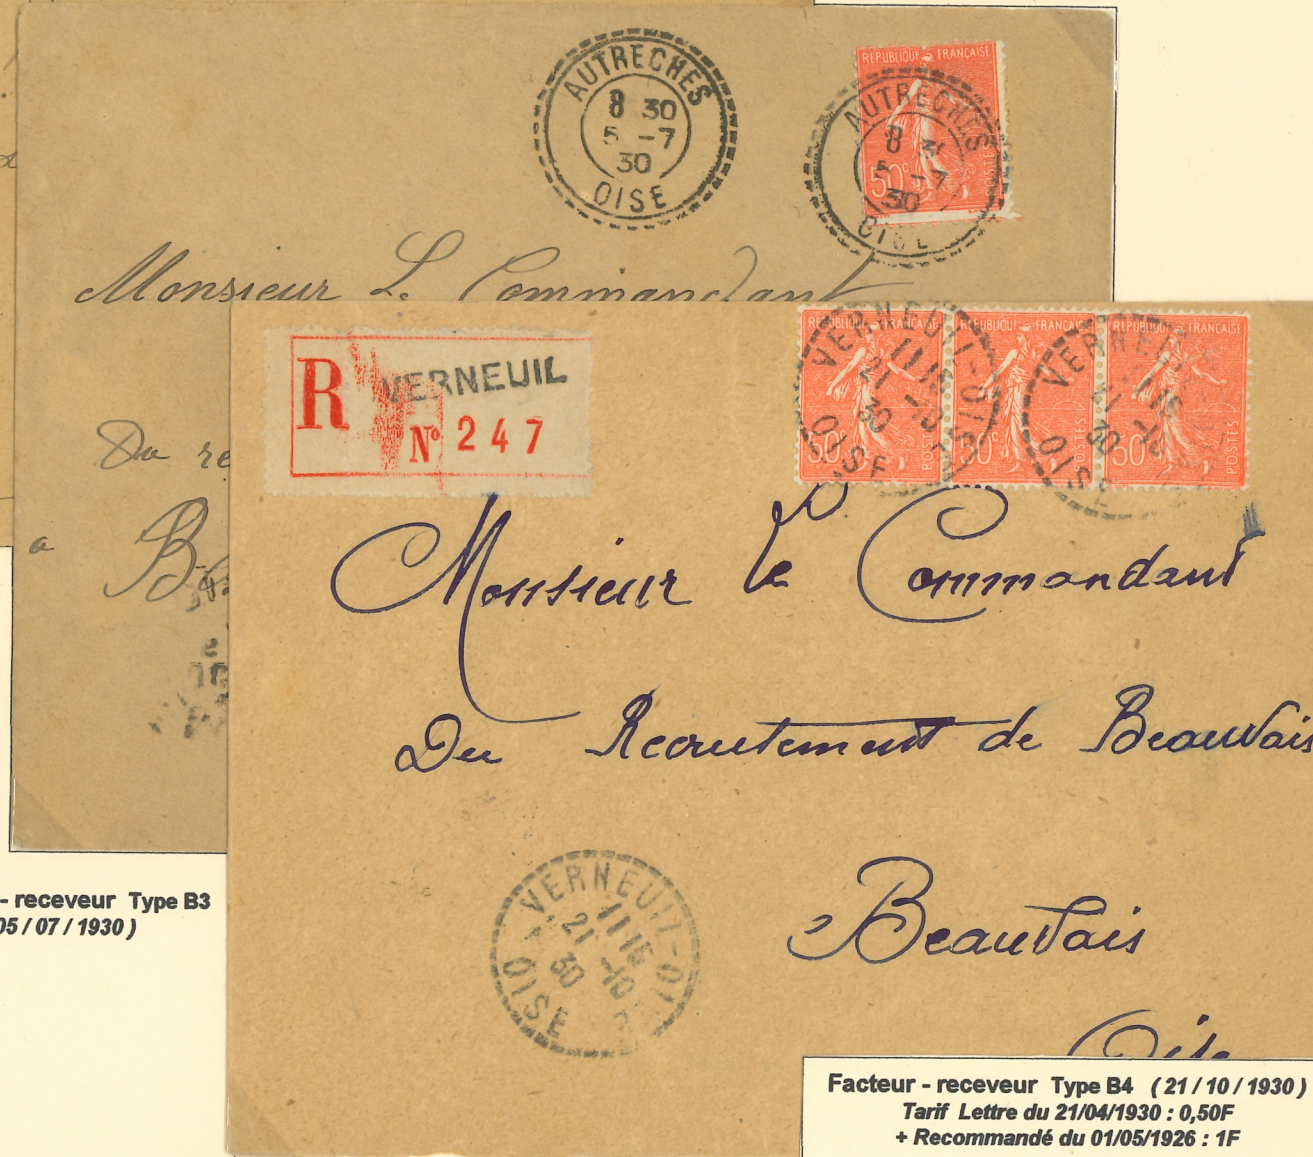 AUTRECHES
8 30
5 -7
30
OISE
REPUBLIQUE FRANÇAISE
50c
POSTES
AUTRECHES
8
5 -7
30
OISE
Monsieur Le Commandant
Du re
a
R
VERNEUIL
No 247
REPUBLIQUE FRANÇAISE
REPUBLIQUE FRANÇAISE
REPUBLIQUE FRANÇAISE
50c
50c
50c
POSTES
POSTES
POSTES
VERNEUIL-OISE
11 15
21 -10
30
OISE
VERNEUIL
21 -10
30
OISE
Monsieur le Commandant
Du Recrutement de Beauvais
Beauvais
Oise
VERNEUIL-OISE
11 15
21 -10
30
OISE
- receveur Type B3
05 / 07 / 1930 )
Facteur - receveur Type B4 ( 21 / 10 / 1930 )
Tarif Lettre du 21/04/1930 : 0,50F
+ Recommandé du 01/05/1926 : 1F